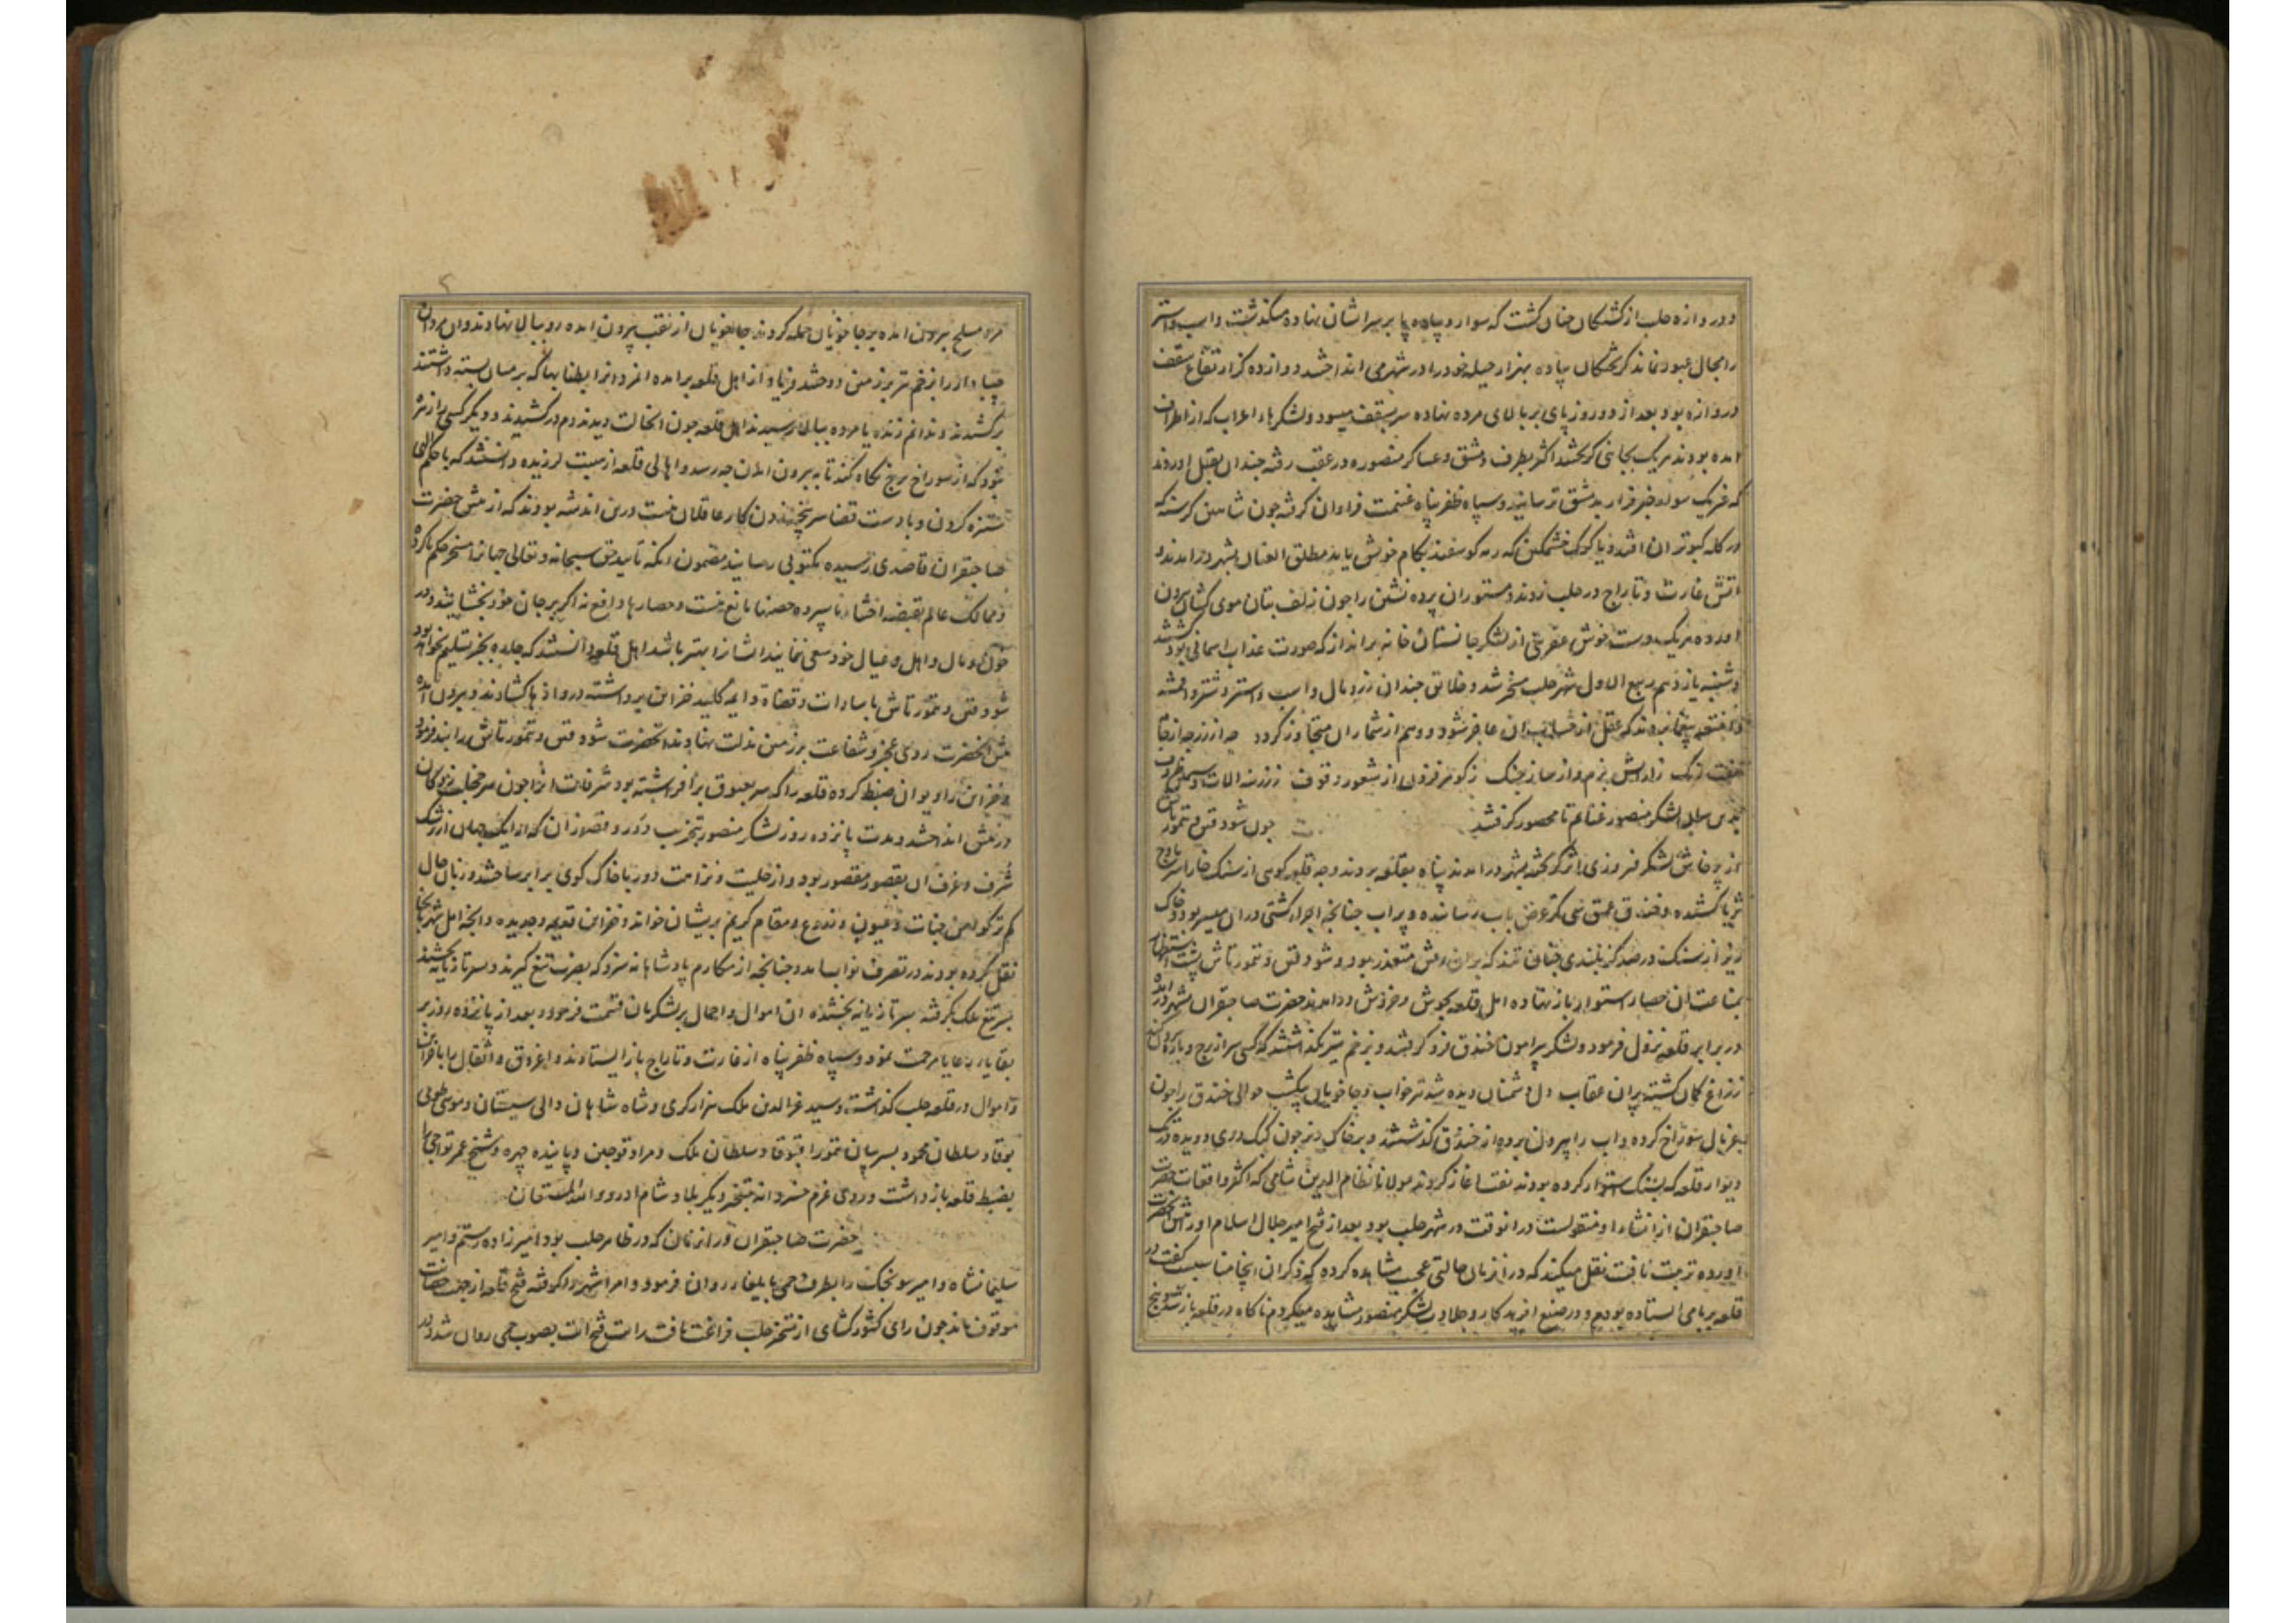 ودروازه حلب از کشتکان چنان کشت که سوار و پیاده پا بر سر ایشان نهاده میکذشت و اسب و استر
را مجال عبور نماند کریختکان پیاده بهزار حیله خود را در شهر می انداختند دوازده کز ارتفاع سقف
دروازه بود بعد از دو روز پای بر بالای مرده نهاده سر بسقف میسود و لشکرهاء اعراب که از اطراف
امده بودند هریک بجائی کریختند اکثر بطرف دمشق و عساکر منصوره در عقب رفته چندان بقتل اوردند
که غریب سواره خبر فرار بدمشق رسانید و سپاه ظفر پناه غنیمت فراوان کرفته چون شاهین کرسنه که
در کله کبوتران افتد و یا کرک خشمکین که رمه کوسفند بکام خویش یابد مطلق العنان بشهر درامدند و
اتش غارت و تاراج در حلب زدند و مستوران پرده نشین را چون زلف بتان موی کشان بیرون
اورده هریک بدست خوش عفریتی از لشکر جانستان خانه برانداز که صورت عذاب اسمانی بود
دوشنبه یازدهم ربیع الاول شهر حلب مسخر شد و خلایق چندان زر و مال و اسب و استر و شتر و اقمشه
و امتعه بیغما بردند که عقل از حساب ان عاجز شود و وهم از شمار ان متجاوز کردد چه از زر چه از جا
زارایش بزم و از ساز جنک ز کوهر فزون از شعور وقوف ززرینه الات و سیمین ظروف
لشکر منصور غنایم نامحصور کرفتند چون شودون و تمورتاش
از پرخاش لشکر فیروزی اثر کریخته بشهر درامدند پناه بقلعه بردند و چه قلعه کوهی از سنک خارا سر باوج
ثریا کشیده و خندق عمیق سی کز عرض باب رسانیده و پر اب چنانچه اجراء کشتی دران میسر بود و خاک
ریز از سنک در صد کز بلندی چنان تند که بران رفتن متعذر بود و شودون و تمورتاش پشت استظهار
بمناعت ان حصار استوار باز نهاده اهل قلعه بجوش و خروش درامدند حضرت صاحبقران بشهر درامده
در برابر قلعه نزول فرمود و لشکر پیرامون خندق فرو کرفتند و بزخم تیر نکذاشتند که کسی سر از برج و باره بیرون کند
ززاغ کمان کشته پران عقاب دل دشمنان دیده شد تیر خواب و چاخویان یکشب حوالی خندق را چون
غربال سوراخ کرده و اب را بیرون برده از خندق کذشتند و بر خاک ریز چون کبک دری دویده نزدیک
دیوار قلعه که بسنک استوار کرده بودند نقب اغاز کردند مولانا نظام الدین شامی که اکثر واقعات حضرت
صاحبقران از انشاء او منقولست دران وقت در شهر حلب بود بعد از فتح امیر جلال اسلام او را پیش حضرت
اورده تربیت یافت نقل میکند که دران زمان حالتی عجیب مشاهده کرده که ذکر ان اینجا مناسبست کفت در
قلعه بر بامی ایستاده بودیم و در صنع افریدکار و جلادت لشکر منصور مشاهده میکردم ناکاه در قلعه باز شد و پنج
مرد مسلح بیرون امده بر چاخویان حمله کردند چاخویان از نقب بیرون امده رو ببالا نهادند و ان مردان
را بزخم تیر بر زمین دوختند فریاد از اهل قلعه برامده انمردان را بطنابها که بر میان بسته داشتند
بر کشیدند و ندانم زنده یا مرده ببالا رسیدند اهل قلعه چون انحالت دیدند دم در کشیدند و دیکر کسی را زهره
نبود که از سوراخ برج نکاه کند تا به بیرون امدن چه رسد و اهالی قلعه از هیبت لرزیده دانستند که با حکم الهی
ستیزه کردن و با دست قضا سر پنجه زدن کار عاقلان نیست درین اندیشه بودند که از پیش حضرت
صاحبقران قاصدی رسیده مکتوبی رسانید مضمون انکه تایید حق سبحانه و تعالی جهان را مسخر حکم ما کرده
و ممالک عالم بقبضه اختیار ما سپرده حصنها مانع نیست و حصارها دافع نه اکر بر جان خود ببخشایند و در
خون و مال و اهل و عیال خود سعی ننمایند ایشانرا بهتر باشد اهل قلعه دانستند که چاره بجز تسلیم نخواهد بود
شودون و تمورتاش با سادات و قضاة و ایمه کلید خزاین برداشته دروازها کشادند و بیرون امده
پیش انحضرت روی عجز و شفاعت بر زمین مذلت نهادند انحضرت شودون و تمورتاش را بند فرمود
و خزاین را دیوان ضبط کرده قلعه را که سر بعیوق برافراشته بود شرفات انرا چون سر مخالفان
در پیش انداختند و مدت پانزده روز لشکر منصور بتخریب دور و قصور ان که از ایک جهان از رشک
شرف و غرف ان بقصور مقصور بود و از حلیت و نزاهت دور با خاک کوی برابر ساختند و زبان حال
کم ترکوا من جنات و عیون و زروع و مقام کریم بریشان خواند و خزاین قدیمه و جدیده و انچه اهل شهر بانجا
نقل کرده بودند در تصرف نواب امد و چنانچه از مکارم پادشاهانه سزد که بضرب تیغ کیرند و بسر تازیانه بخشند
بسر تیغ ملک بکرفته بسر تازیانه بخشیده ان اموال و احمال بر لشکریان قسمت فرمود و بعد از پانزده روز بر
بقایاء رعایا مرحمت نمود و سپاه ظفر پناه از غارت و تاراج باز ایستادند و اغروق و اثقال را با خزاین
و اموال در قلعه حلب کذاشته و سید عزالدین ملک هزارکری و شاه شاهان والی سیستان و موسی طوی
بوقا و سلطان محمود پسر پیان تمور اقبوقا و سلطان ملک و مراد قوجین و پاینده چهره و شیخ عمر تواجی را
بضبط قلعه باز داشت و روی عزم خسروانه بتسخیر دیکر بلاد شام اورد والله المستعان
حضرت صاحبقران دران زمان که در ظاهر حلب بود امیرزاده رستم و امیر
سلیمانشاه و امیر سونجک را بطرف حمی بایلغار روان فرمود و امرا شهر را کرفته فتح قلعه از جهت حصانت
موقوف ماند چون رای کشورکشای از تسخیر حلب فراغت یافت رایت فتح ایت بصوب حمی روان شد و در